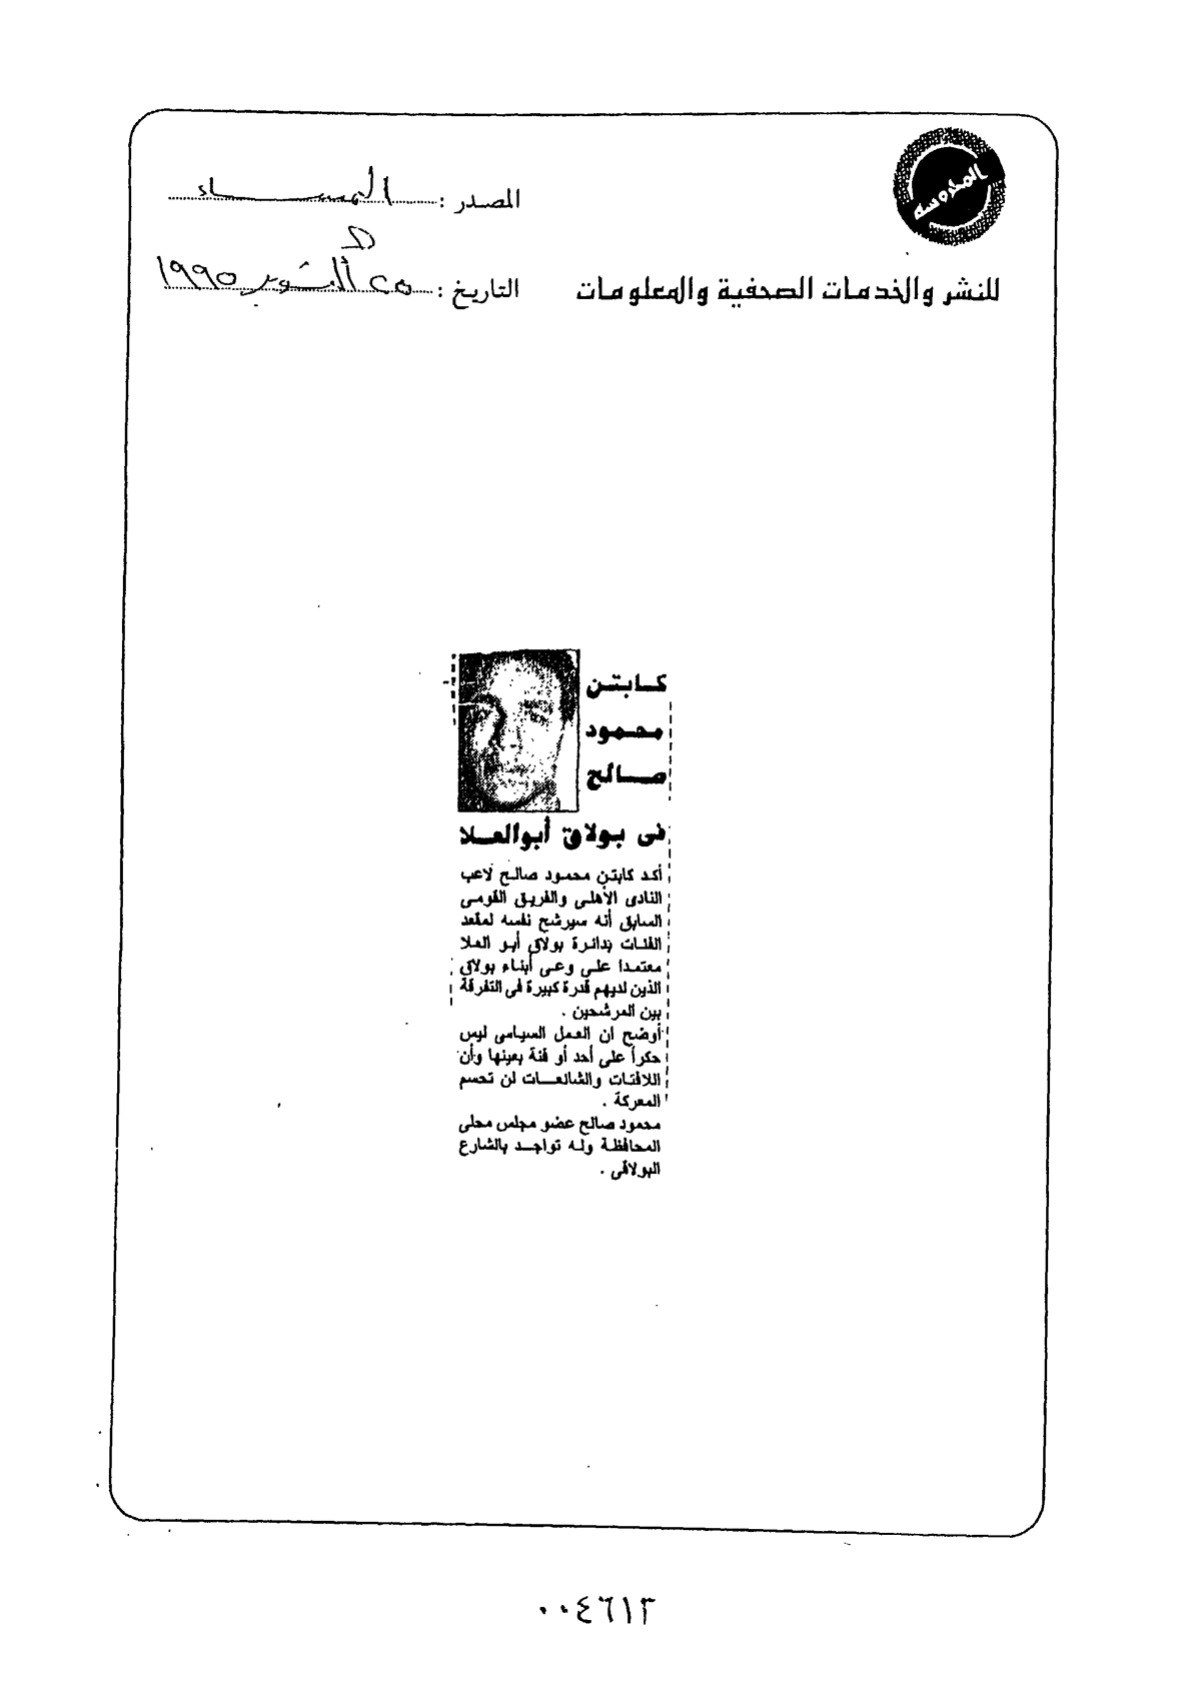 المحروسة
المصدر : المساء
للنشر والخدمات الصحفية والمعلومات
التاريخ : ٢٥ أكتوبر ١٩٩٥
كابتن
محمود
صالح
فى بولاق أبوالعلا
أكد كابتن محمود صالح لاعب
النادى الأهلى والفريق القومى
السابق أنه سيرشح نفسه لمقعد
الفئات بدائرة بولاق أبو العلا
معتمدا على وعى أبناء بولاق
الذين لديهم قدرة كبيرة فى التفرقة
بين المرشحين .
أوضح ان العمل السياسى ليس
حكراً على أحد أو فئة بعينها وأن
اللافتات والشائعات لن تحسم
المعركة .
محمود صالح عضو مجلس محلى
المحافظة وله تواجد بالشارع
البولاقى .
٠٠٤٦١٣